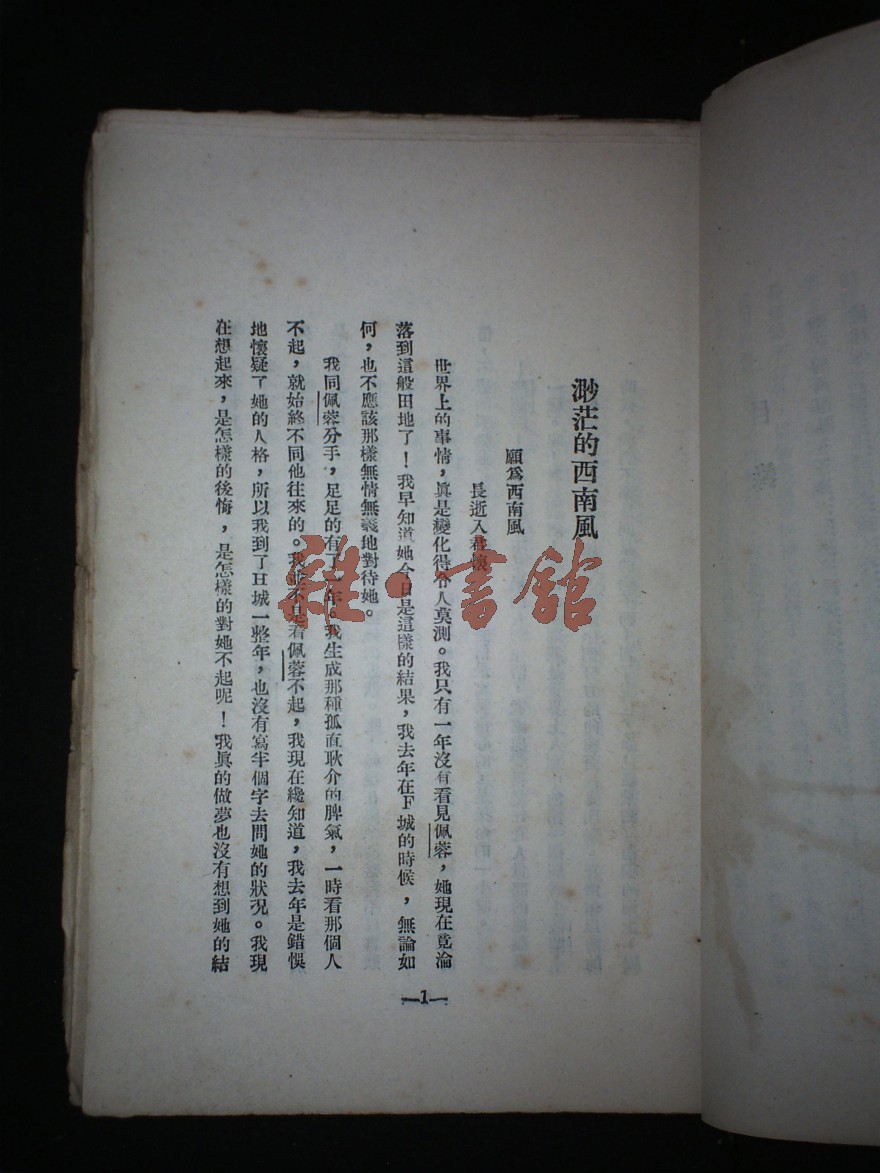 渺茫的西南風
願爲西南風
長逝入君懷
世界上的事情，眞是變化得令人莫測。我只有一年沒有看見佩蓉，她現在竟淪
落到這般田地了！我早知道她今日是這樣的結果，我去年在F城的時候，無論如
何，也不應該那樣無情無義地對待她。
我同佩蓉分手，足足的有了一年。我生成那種孤直耿介的脾氣，一時看那個人
不起，就始終不同他往來的。我並不是看佩蓉不起，我現在纔知道，我去年是錯悞
地懷疑了她的人格，所以我到了H城一整年，也沒有寫半個字去問她的狀况。我現
在想起來，是怎樣的後悔，是怎樣的對她不起呢！我眞的做夢也沒有想到她的結
—1—
雜·書館
目錄